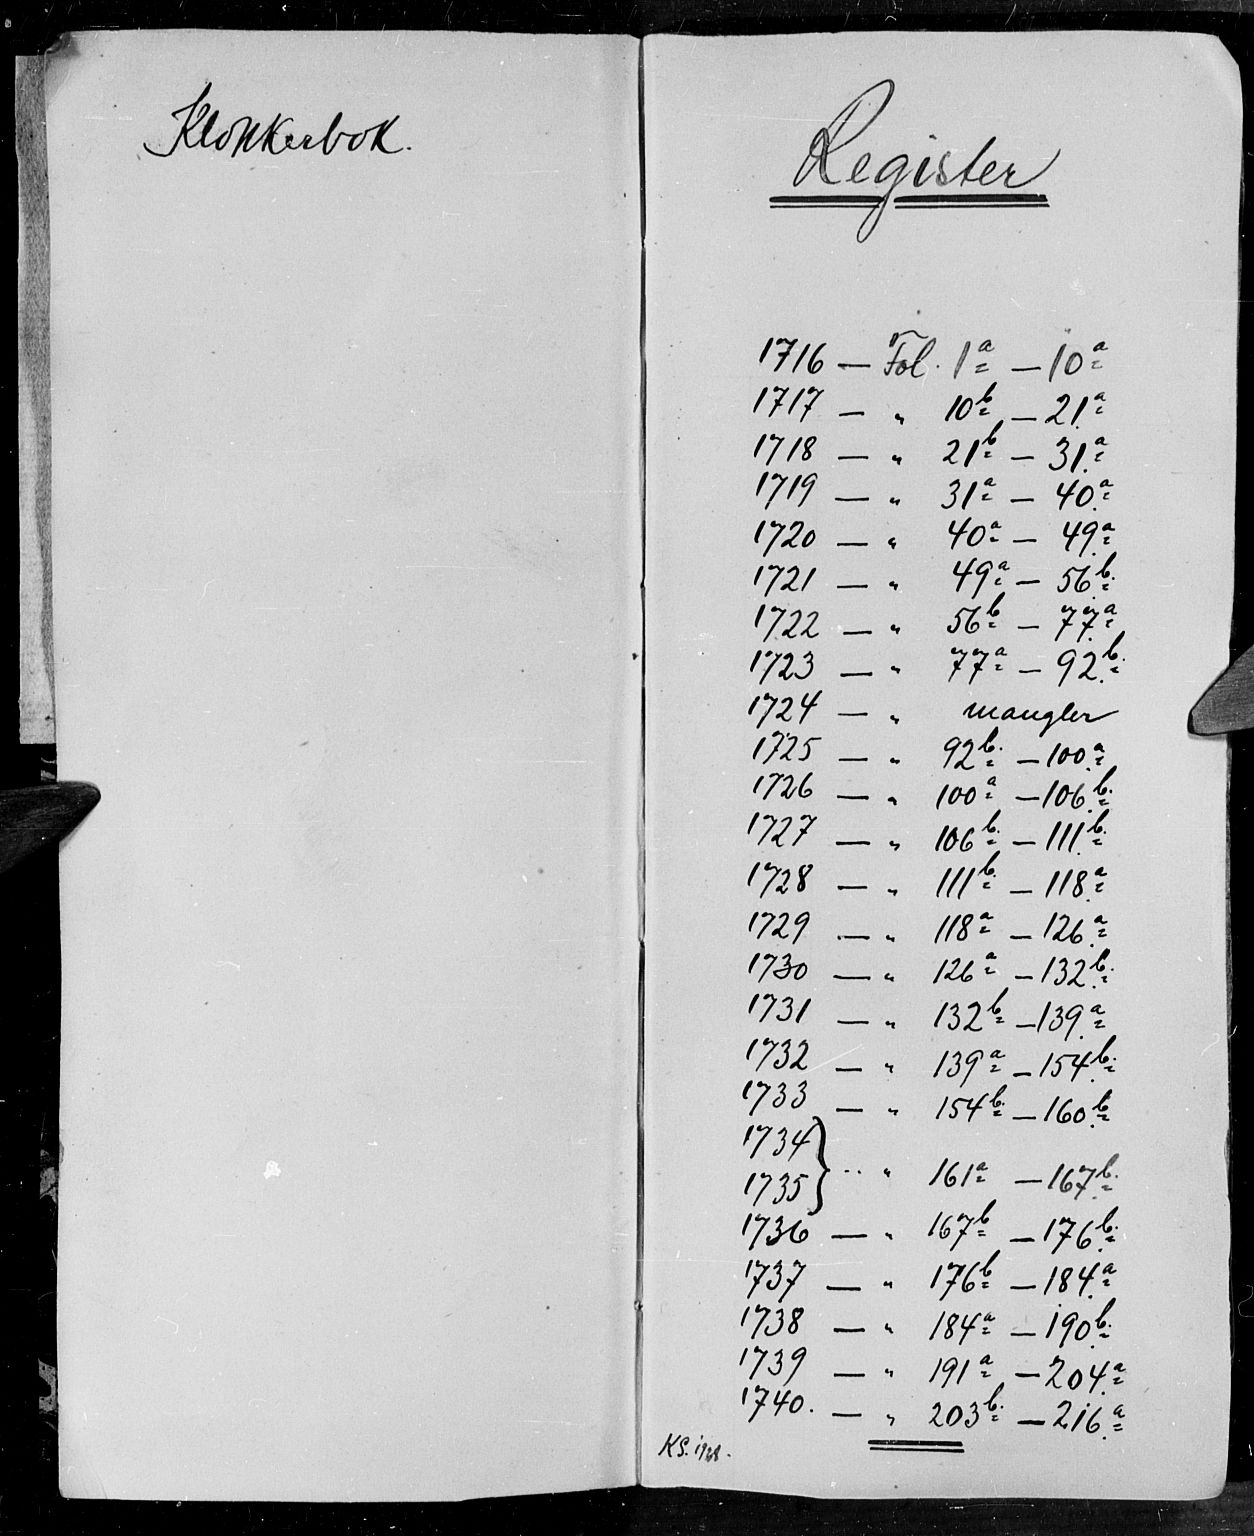 Klokkerbok.
Register
1716 — Fol. 1a — 10a
1717 — " 10b — 21a
1718 — " 21b — 31a
1719 — " 31a — 40a
1720 — " 40a — 49a
1721 — " 49a — 56b
1722 — " 56b — 77a
1723 — " 77a — 92b
1724 — " mangler
1725 — " 92b — 100a
1726 — " 100a — 106b
1727 — " 106b — 111b
1728 — " 111b — 118a
1729 — " 118a — 126a
1730 — " 126a — 132b
1731 — " 132b — 139a
1732 — " 139a — 154b
1733 — " 154b — 160b
1734
1735 } .. " 161a — 167b
1736 — " 167b — 176b
1737 — " 176b — 184a
1738 — " 184a — 190b
1739 — " 191a — 204a
1740. — " 203b — 216a
KS.